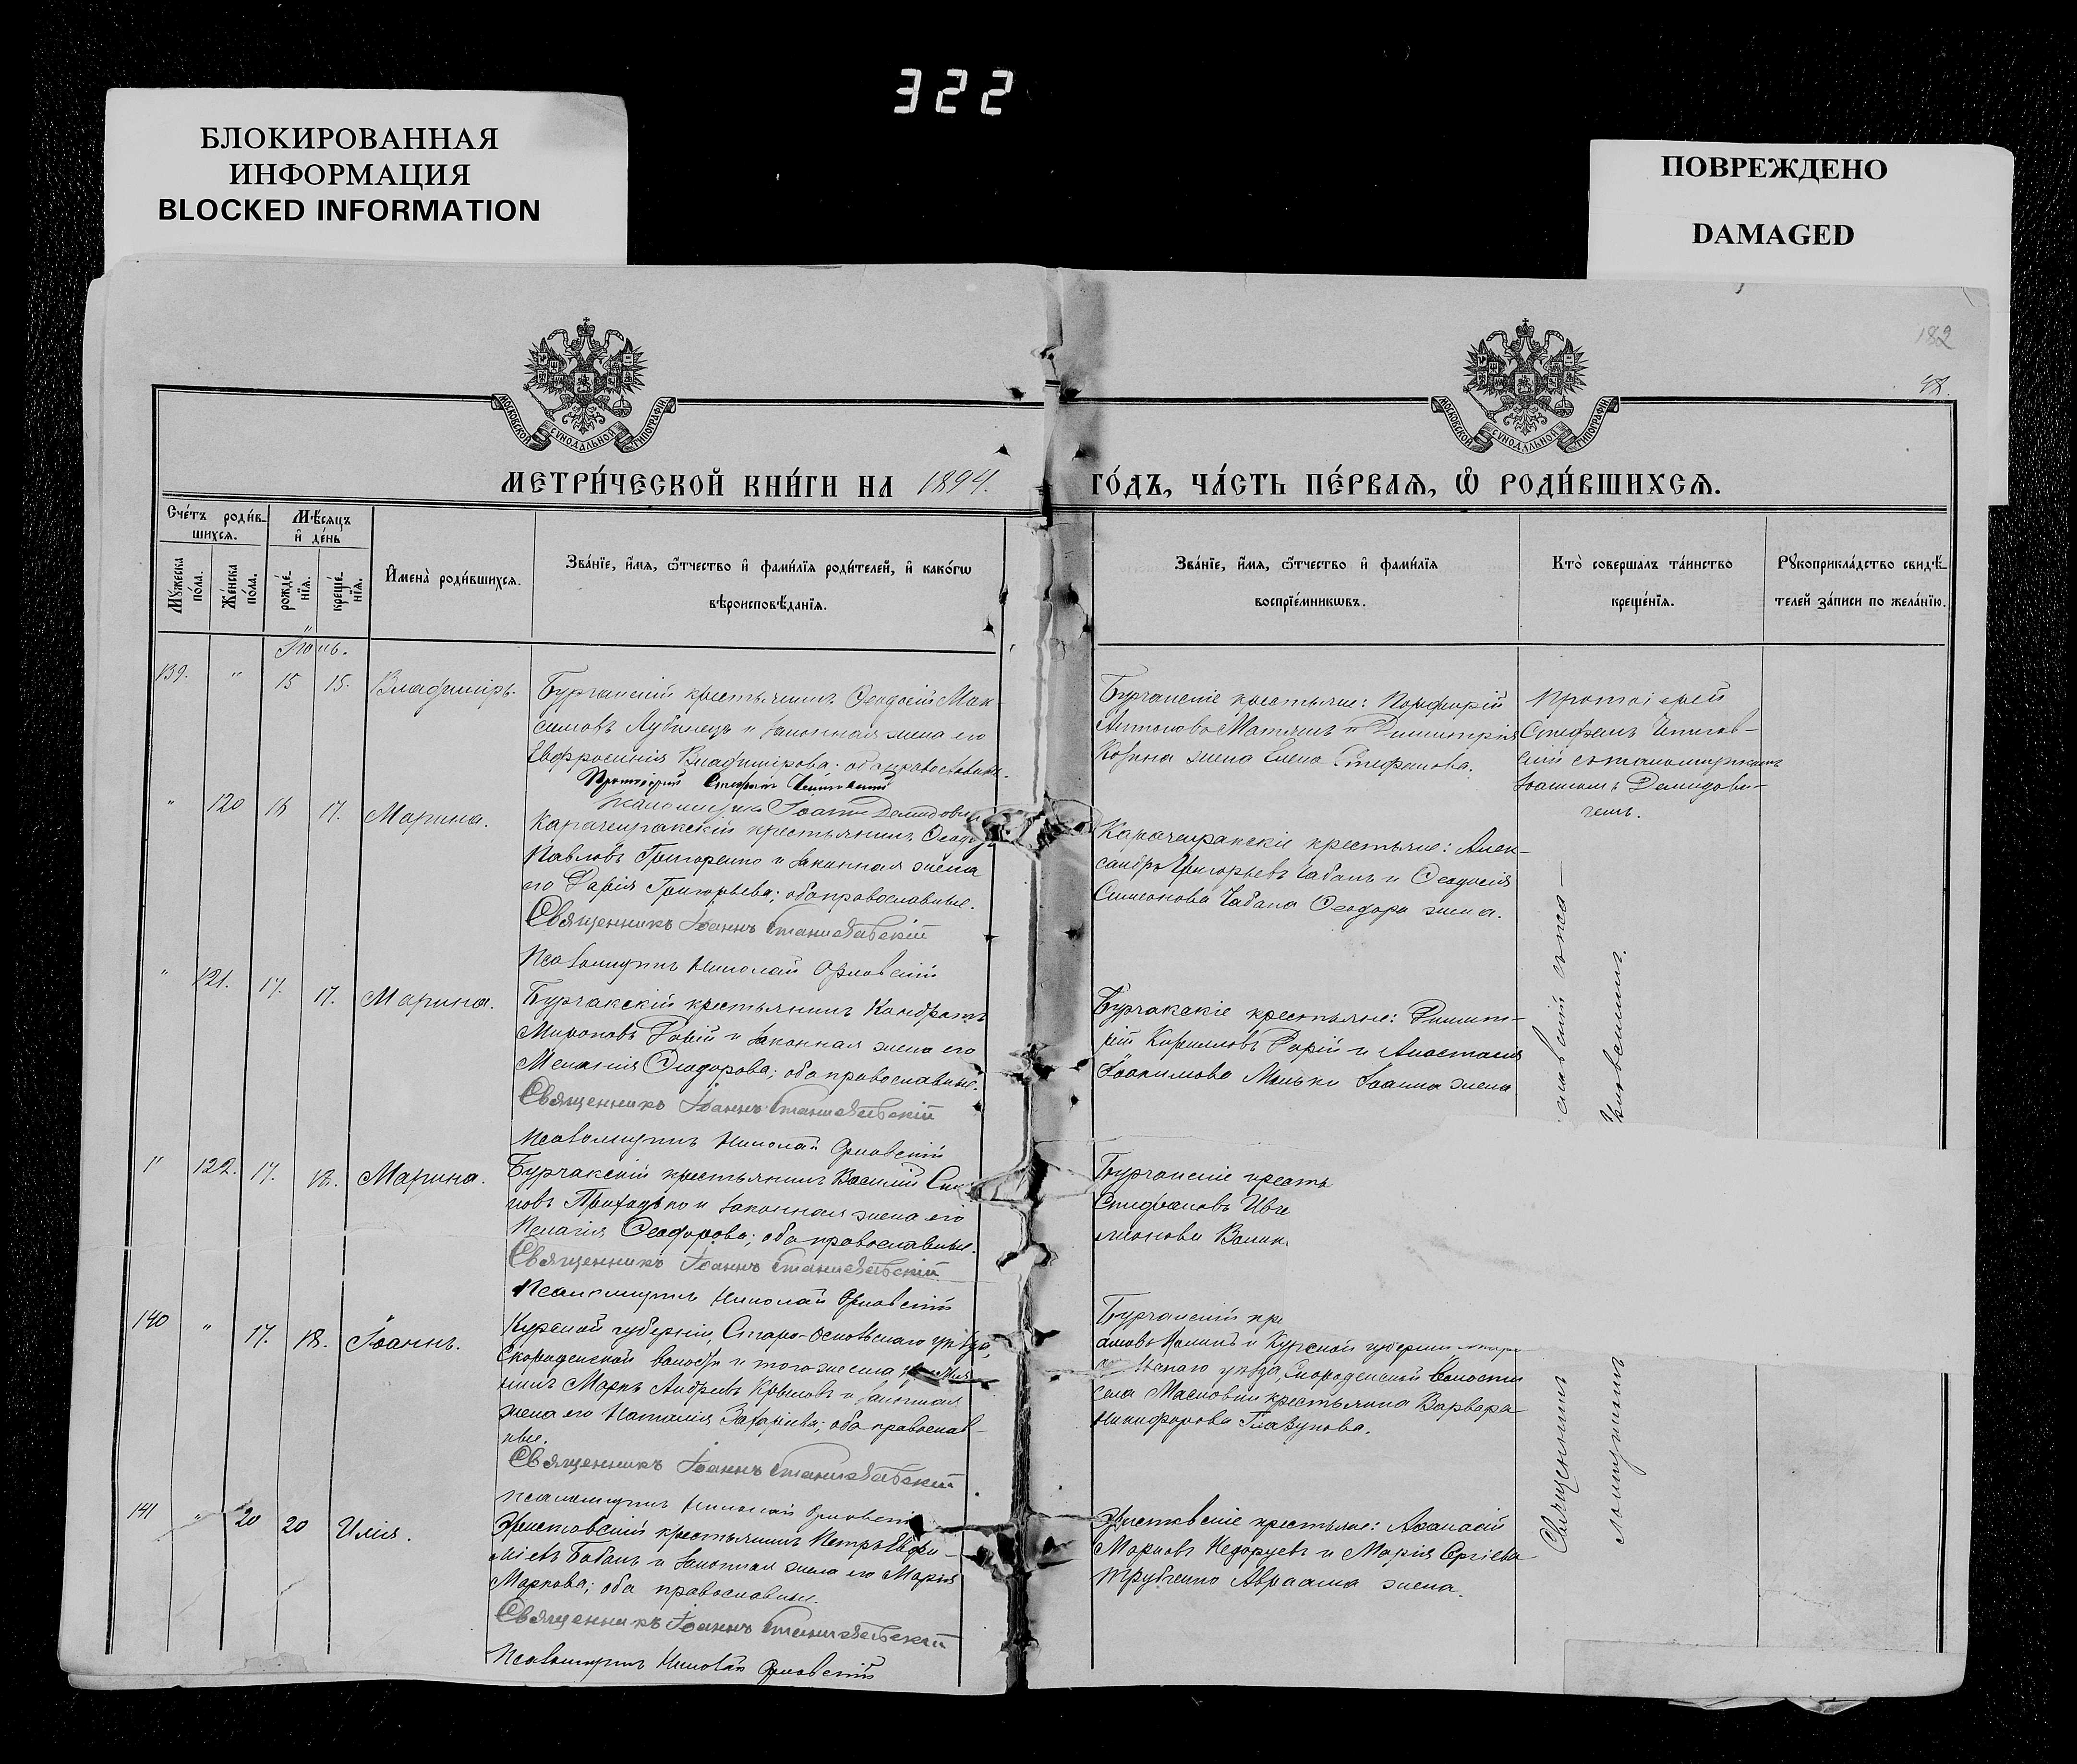 322
БЛОКИРОВАННАЯ
ИНФОРМАЦИЯ
BLOCKED INFORMATION
ПОВРЕЖДЕНО
DAMAGED
182
МОСКОВСКОЙ СѴНОДАЛЬНОЙ ТИПОГРАФІИ
МОСКОВСКОЙ СѴНОДАЛЬНОЙ ТИПОГРАФІИ
МЕТРИ́ЧЕСКОЙ КНИ́ГИ НА 1894.
ГО́ДЪ, ЧА́СТЬ ПЕ́РВАѦ, Ѡ҆ РОДИ́ВШИХСѦ.
Сче́тъ роди́в-
шихсѧ.
Мꙋ́жеска по́ла.
Же́нска по́ла.
Мѣ́сѧцъ
и҆ де́нь
рожде́-
нїѧ.
креще́-
нїѧ.
И҆мена̀ роди́вшихсѧ.
Зва́нїе, и҆́мѧ, ѻ҆́тчество и҆ фами́лїѧ роди́телей, и҆ како́гѡ
вѣроисповѣ́данїѧ.
Зва́нїе, и҆́мѧ, ѻ҆́тчество и҆ фами́лїѧ
воспрїе́мникѡвъ.
Кто̀ соверша́лъ та́инство
креще́нїѧ.
Рꙋкоприкла́дство свидѣ́-
телей за́писи по жела́нїю.
Іюнь.
139. " 15 15. Владиміръ.
Бурчакскій крестьянинъ Ѳеодосій Мак-
симовъ Лубенецъ и законная жена его
Евфросинія Владимірова; оба православные.
Протоіерей Стефанъ
Псаломщикъ Іоаннъ Демидовичъ
Бурчакскіе крестьяне: Порфирій
Антоновъ и Димитрія
жена Елена Стефанова.
Протоіерей
Стефанъ
съ псаломщикомъ
Іоанномъ Демидови-
чемъ.
" 120 16 17. Марина.
Карачекракскій крестьянинъ
Павловъ Григоренко и законная жена
его Дарія Григорьева; оба православные.
Священникъ Іоаннъ Станиславскій
Псаломщикъ Николай Орловскій
Карачекракскіе крестьяне: Алек-
сандръ Григорьевъ Чабанъ и Ѳеодосія
Симеонова Чабана Ѳеодора жена.
" 121. 17. 17. Марина.
Бурчакскій крестьянинъ Кондратъ
Мироновъ и законная жена его
Меланія Ѳеодорова; оба православные.
Священникъ Іоаннъ Станиславскій
Псаломщикъ Николай Орловскій
Бурчакскіе крестьяне: Димит-
рій Кирилловъ и Анастасія
Іоакимова Іоанна жена
" 122. 17. 18. Марина.
Бурчакскій крестьянинъ Василій
Приходько и законная жена его
Пелагія Ѳеодорова; оба православные.
Священникъ Іоаннъ Станиславскій
Псаломщикъ Николай Орловскій
Бурчакскіе кресть
Стефановъ
140 " 17. 18. Іоаннъ.
Курской губерніи, Старо-Оскольскаго уѣзда,
Скороденской волости и того же села
Маркъ Андреевъ Крыловъ и законная
жена его Наталія Захаріева; оба православ-
ные.
Священникъ Іоаннъ Станиславскій
Псаломщикъ Николай Орловскій
Бурчакскій кре
и Курской губерніи
уѣзда, Скороденской волости
села Масловки крестьянка Варвара
Никифорова Глазунова.
141 " 20 20 Илія.
крестьянинъ Петръ
Бабанъ и законная жена его Марія
Маркова; оба православные.
Священникъ Іоаннъ Станиславскій
Псаломщикъ Николай Орловскій
крестьяне: Аѳанасій
Марковъ и Марія Сергіева
Трубченко Авраама жена.
Священникъ